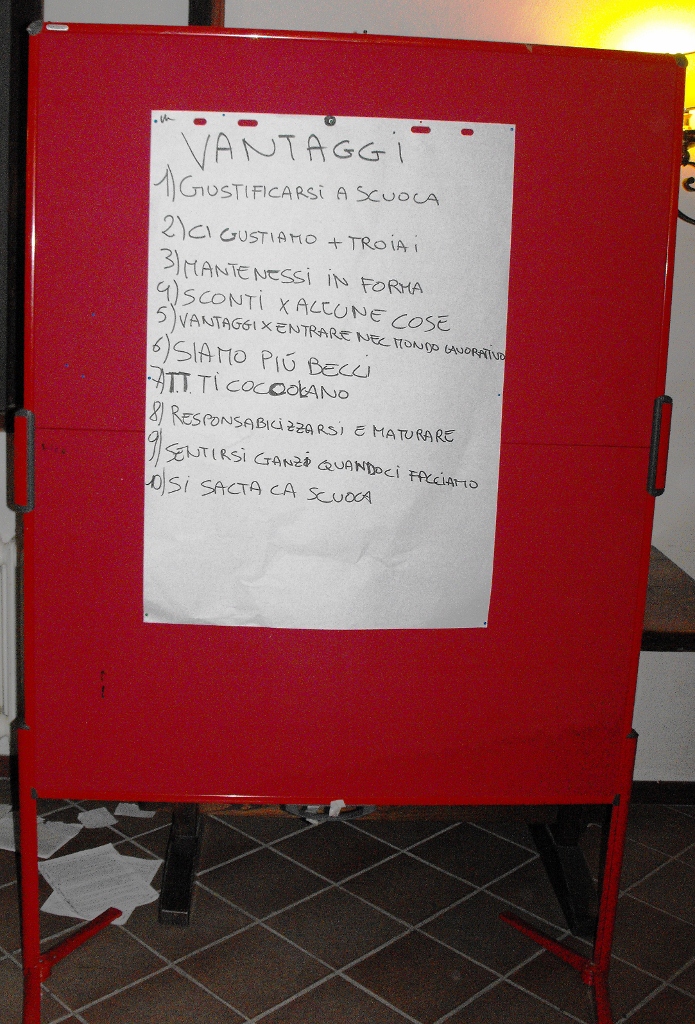 VANTAGGI
1) GIUSTIFICARSI A SCUOLA
2) CI GUSTIAMO + TROIAI
3) MANTENESSI IN FORMA
4) SCONTI X ALCUNE COSE
5) VANTAGGI X ENTRARE NEL MONDO LAVORATIVO
6) SIAMO PIÚ BELLI
7) TT. TI COCCOLANO
8) RESPONSABILIZZARSI E MATURARE
9) SENTIRSI GANZI QUANDO CI FACCIAMO
10) SI SALTA LA SCUOLA